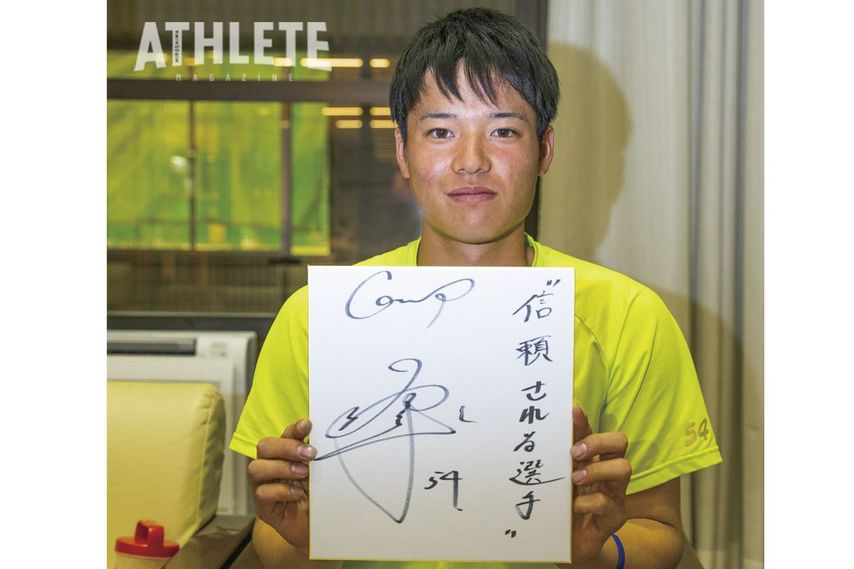 ATHLETE
MAGAZINE
Carp
“信頼される選手”
54
54